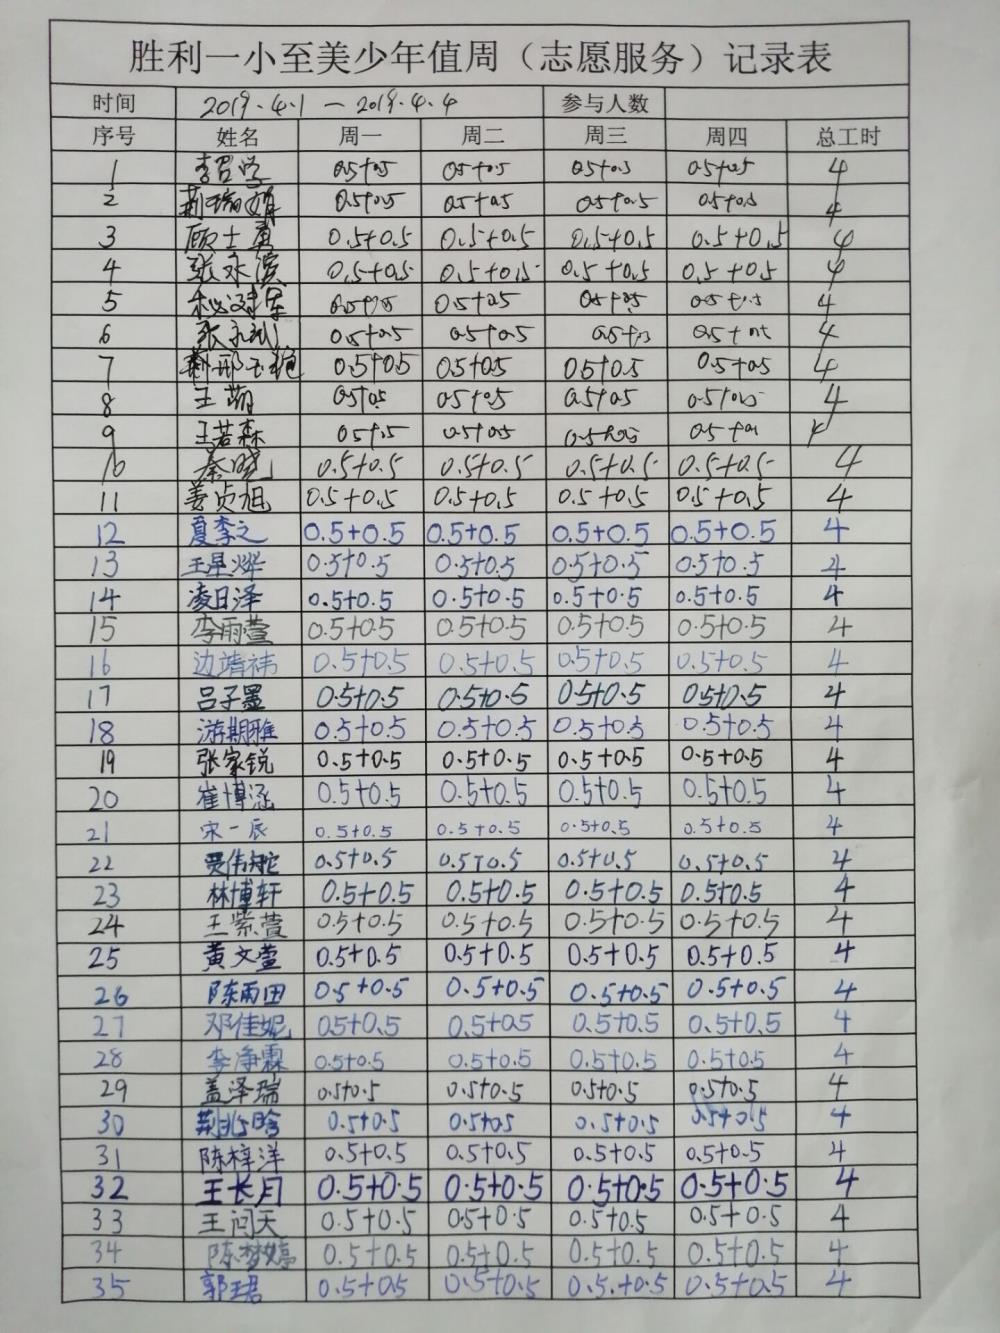 胜利一小至美少年值周（志愿服务）记录表
时间 2019.4.1 — 2019.4.4 参与人数
序号 姓名 周一 周二 周三 周四 总工时
1 0.5+0.5 0.5+0.5 0.5+0.5 0.5+0.5 4
2 0.5+0.5 0.5+0.5 0.5+0.5 0.5+0.5 4
3 顾士勇 0.5+0.5 0.5+0.5 0.5+0.5 0.5+0.5 4
4 张永滨 0.5+0.5 0.5+0.5 0.5+0.5 0.5+0.5 4
5 0.5+0.5 0.5+0.5 0.5+0.5 4
6 0.5+0.5 0.5+0.5 4
7 0.5+0.5 0.5+0.5 0.5+0.5 0.5+0.5 4
8 王萌 0.5+0.5 0.5+0.5 0.5+0.5 4
9 王若森 0.5+0.5 0.5+0.5
10 秦晓 0.5+0.5 0.5+0.5 0.5+0.5 0.5+0.5 4
11 姜贞旭 0.5+0.5 0.5+0.5 0.5+0.5 0.5+0.5 4
12 夏李之 0.5+0.5 0.5+0.5 0.5+0.5 0.5+0.5 4
13 王星烨 0.5+0.5 0.5+0.5 0.5+0.5 0.5+0.5 4
14 凌日泽 0.5+0.5 0.5+0.5 0.5+0.5 0.5+0.5 4
15 李雨萱 0.5+0.5 0.5+0.5 0.5+0.5 0.5+0.5 4
16 边靖祎 0.5+0.5 0.5+0.5 0.5+0.5 0.5+0.5 4
17 吕子墨 0.5+0.5 0.5+0.5 0.5+0.5 0.5+0.5 4
18 游期雅 0.5+0.5 0.5+0.5 0.5+0.5 0.5+0.5 4
19 张家锐 0.5+0.5 0.5+0.5 0.5+0.5 0.5+0.5 4
20 崔博涵 0.5+0.5 0.5+0.5 0.5+0.5 0.5+0.5 4
21 宋一辰 0.5+0.5 0.5+0.5 0.5+0.5 0.5+0.5 4
22 0.5+0.5 0.5+0.5 0.5+0.5 0.5+0.5 4
23 林博轩 0.5+0.5 0.5+0.5 0.5+0.5 0.5+0.5 4
24 王紫萱 0.5+0.5 0.5+0.5 0.5+0.5 0.5+0.5 4
25 黄文萱 0.5+0.5 0.5+0.5 0.5+0.5 0.5+0.5 4
26 陈雨田 0.5+0.5 0.5+0.5 0.5+0.5 0.5+0.5 4
27 邓佳妮 0.5+0.5 0.5+0.5 0.5+0.5 0.5+0.5 4
28 李净霖 0.5+0.5 0.5+0.5 0.5+0.5 0.5+0.5 4
29 盖泽瑞 0.5+0.5 0.5+0.5 0.5+0.5 0.5+0.5 4
30 荆兆晗 0.5+0.5 0.5+0.5 0.5+0.5 0.5+0.5 4
31 陈梓洋 0.5+0.5 0.5+0.5 0.5+0.5 0.5+0.5 4
32 王长月 0.5+0.5 0.5+0.5 0.5+0.5 0.5+0.5 4
33 王问天 0.5+0.5 0.5+0.5 0.5+0.5 0.5+0.5 4
34 陈梦婷 0.5+0.5 0.5+0.5 0.5+0.5 0.5+0.5 4
35 郭珺 0.5+0.5 0.5+0.5 0.5+0.5 0.5+0.5 4